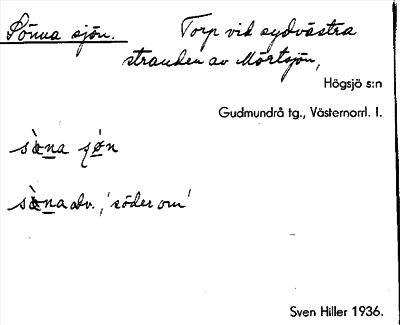 Sönna sjön. Torp vid sydvästra
stranden av Mörtsjön,
Högsjö s:n
Gudmundrå tg., Västernorrl. l.
adv., 'söder om'
Sven Hiller 1936.